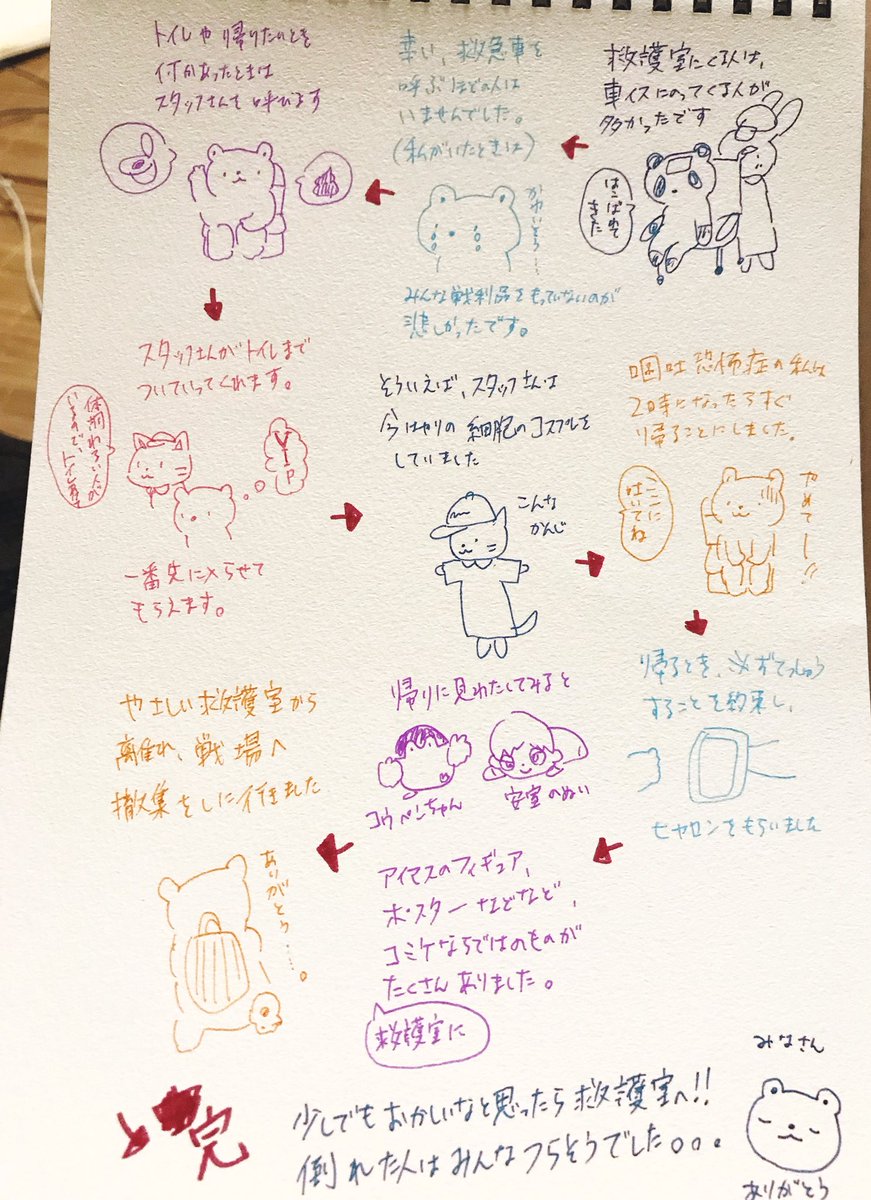 救護室にくる人は、
車イスにのってくる人が
多かったです
はこばれて
きた
幸い、救急車を
呼ぶほどの人は
いませんでした。
(私がいたときは)
かわいそう……
みんな戦利品をもっていないのが
悲しかったです。
トイレや帰りたいのとき
何かあったときは
スタッフさんを呼びます
スタッフさんがトイレまで
ついていってくれます。
体調わるい人が
いるので、トイレ
VIP
一番先に入らせて
もらえます。
そういえば、スタッフさんは
今はやりの細胞のコスプレを
していました
こんな
かんじ
嘔吐恐怖症の私は
2時となったらすぐ
帰ることにしました。
ここに
はいてね
やめてー!!
帰るとき、必ずてっしゅう
することを約束し、
ヒヤロンをもらいました
帰りに見わたしてみると
コウペンちゃん
安室のぬい
アイマスのフィギュア、
ポスターなどなど、
コミケならではのものが
たくさんありました。
救護室に
やさしい救護室から
離れ、戦場へ
撤収をしに行きました
ありがとう……。
完
少しでもおかしいなと思ったら救護室へ!!
倒れた人はみんなつらそうでした。。。
みなさん
ありがとう